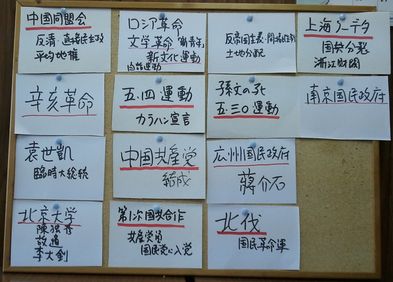 中国同盟会
反清・直接民主政
平均地権
辛亥革命
袁世凱
臨時大総統
北京大学
陳独秀
魯迅
李大釗
ロシア革命
文学革命「新青年」
新文化運動
白話運動
五・四運動
カラハン宣言
中国共産党
結成
第1次国共合作
共産党員
国民党に入党
土地分配
孫文の死
五・三〇運動
広州国民政府
蔣介石
北伐
国民革命軍
上海クーデタ
国共分裂
浙江財閥
南京国民政府